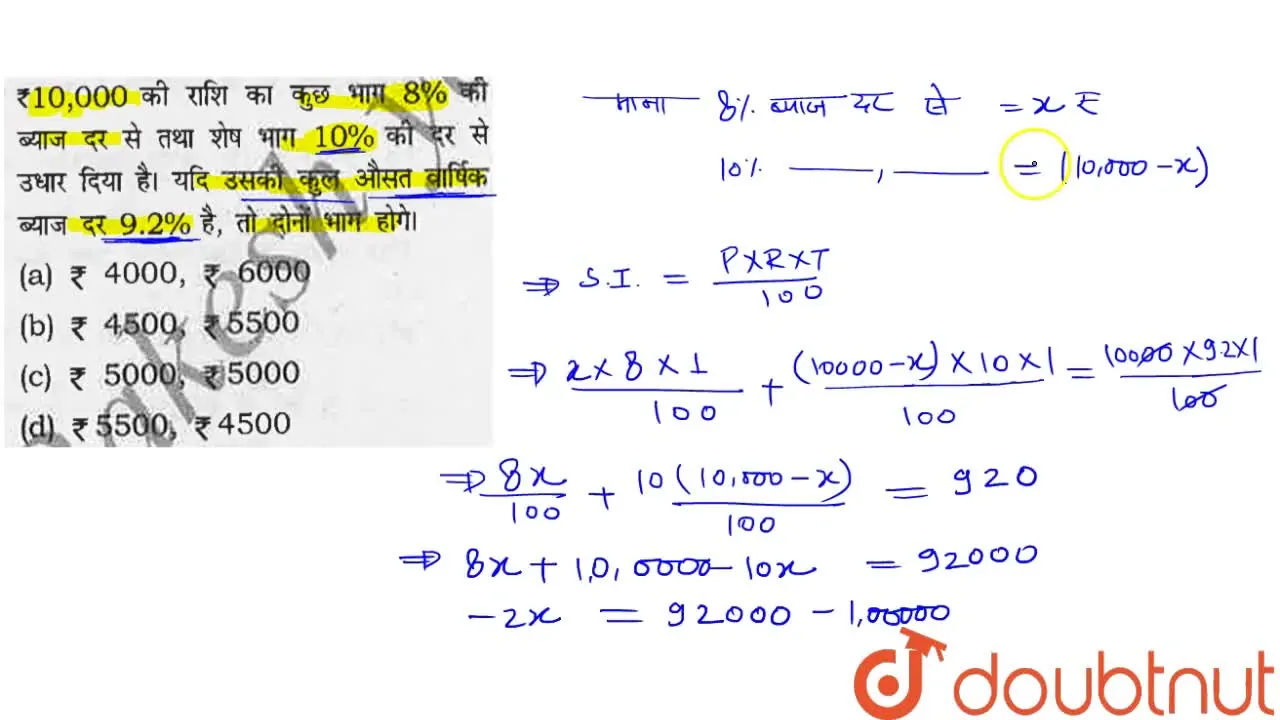 ₹10,000 की राशि का कुछ भाग 8% की
ब्याज दर से तथा शेष भाग 10% की दर से
उधार दिया है। यदि उसकी कुल औसत वार्षिक
ब्याज दर 9.2% है, तो दोनों भाग होगे।
(a) ₹ 4000, ₹ 6000
(b) ₹ 4500, ₹ 5500
(c) ₹ 5000, ₹ 5000
(d) ₹ 5500, ₹ 4500
माना 8% ब्याज दर से = x ₹
10% ——— , ——— = (10,000 - x)
⇒ S.I. = P×R×T / 100
⇒ x × 8 × 1 / 100 + (10000 - x) × 10 × 1 / 100 = 10000 × 9.2 × 1 / 100
⇒ 8x / 100 + 10 (10,000 - x) / 100 = 920
⇒ 8x + 1,0,0000 - 10x = 92000
- 2x = 92000 - 1,00000
doubtnut